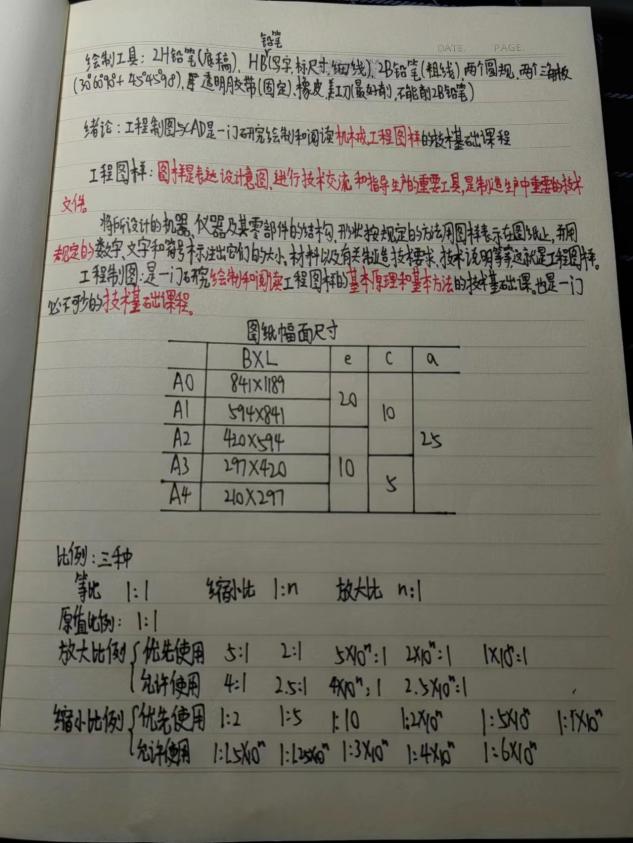 DATE. PAGE.
铅笔
绘制工具：2H铅笔(底稿)，HB(写字,标尺寸,细线)，2B铅笔(粗线) 两个圆规，两个三角板
(30°60°90°+45°45°90°)，透明胶带(固定)，橡皮，美工刀(最好削，不能削2B铅笔)
绪论：工程制图与CAD是一门研究绘制和阅读机械或工程图样的技术基础课程
工程图样：图样是表达设计意图、进行技术交流和指导生产的重要工具，是制造生产中重要的技术
文件。
将所设计的机器、仪器及其零部件的结构、形状按规定的方法用图样表示在图纸上，并用
规定的数字、文字和符号标注出它们的大小、材料以及有关制造技术要求、技术说明等等这就是工程图样。
工程制图：是一门研究绘制和阅读工程图样的基本原理和基本方法的技术基础课。也是一门
必不可少的技术基础课程。
图纸幅面尺寸
BXL e C a
A0 841×1189 20 10 25
A1 594×841
A2 420×594 10
A3 297×420 5
A4 210×297
比例：三种
等比 1:1 缩小比 1:n 放大比 n:1
原值比例：1:1
放大比例 { 优先使用 5:1 2:1 5×10ⁿ:1 2×10ⁿ:1 1×10ⁿ:1
允许使用 4:1 2.5:1 4×10ⁿ:1 2.5×10ⁿ:1
缩小比例 { 优先使用 1:2 1:5 1:10 1:2×10ⁿ 1:5×10ⁿ 1:1×10ⁿ
允许使用 1:1.5×10ⁿ 1:2.5×10ⁿ 1:3×10ⁿ 1:4×10ⁿ 1:6×10ⁿ